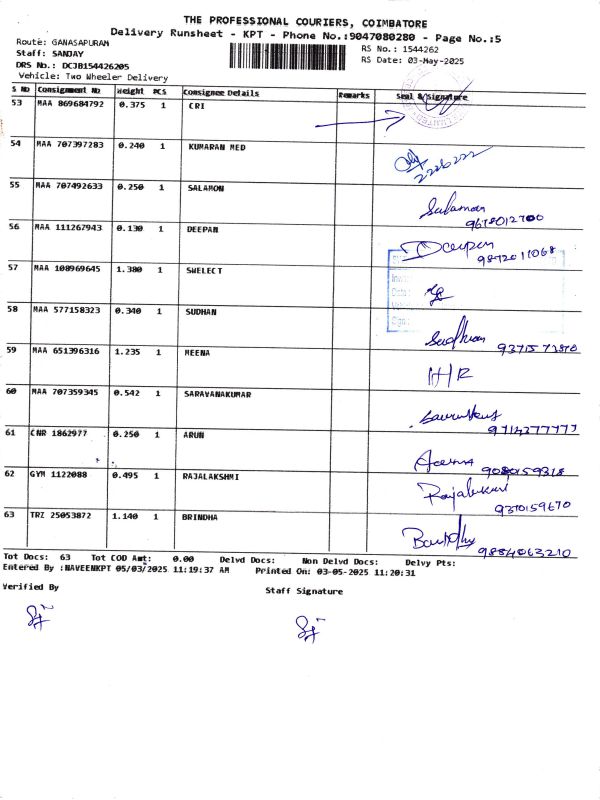 THE PROFESSIONAL COURIERS, COIMBATORE
Delivery Runsheet - KPT - Phone No.:9047080280 - Page No.:5
Route: GANASAPURAM
RS No.: 1544262
Staff: SANJAY
RS Date: 03-May-2025
DRS No.: DCJB154426205
Vehicle: Two Wheeler Delivery
S No Consignment No Weight PCS Consignee Details Remarks Seal & Signature
53 MAA 869684792 0.375 1 CRI
54 MAA 707397283 0.240 1 KUMARAN MED
55 MAA 707492633 0.250 1 SALAMON Salaman 9678012700
56 MAA 111267943 0.130 1 DEEPAN Deepan 9872011068
57 MAA 108969645 1.380 1 SWELECT
58 MAA 577158323 0.340 1 SUDHAN Sudhan
59 MAA 651396316 1.235 1 MEENA H/R
60 MAA 707359345 0.542 1 SARAVANAKUMAR
61 CNR 1862977 0.250 1 ARUN
62 GYM 1122088 0.495 1 RAJALAKSHMI 9370159670
63 TRZ 25053872 1.140 1 BRINDHA 9884063210
Tot Docs: 63 Tot COD Amt: 0.00 Delvd Docs: Non Delvd Docs: Delvy Pts:
Entered By :NAVEENKPT 05/03/2025 11:19:37 AM Printed On: 03-05-2025 11:20:31
Verified By
Staff Signature